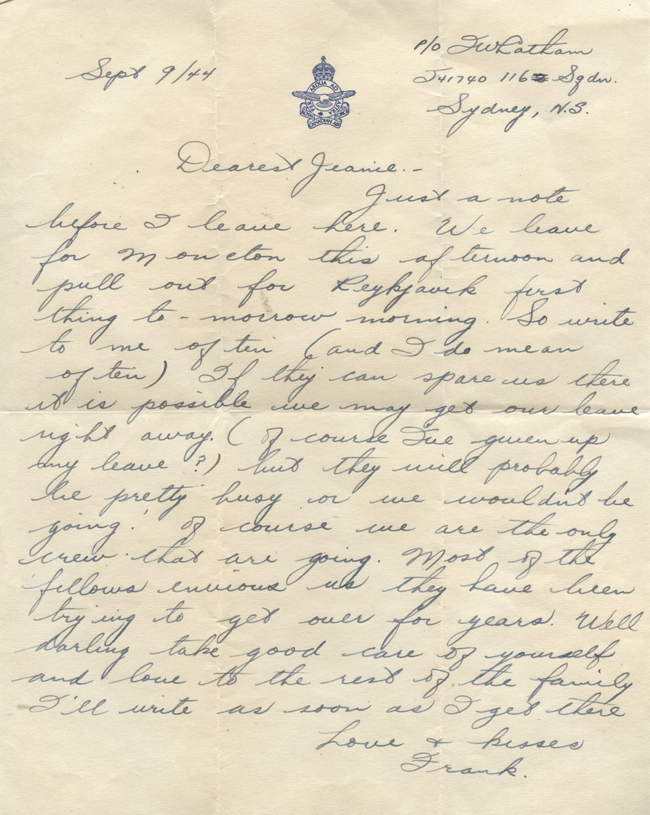 Sept 9/44
P/O FW Latham
J41740 116 Sqdn.
Sydney, N.S.
PER ARDUA AD ASTRA
ROYAL CANADIAN AIR FORCE
Dearest Jeanie.-
Just a note
before I leave here. We leave
for Moncton this afternoon and
pull out for Reykjavik first
thing to-morrow morning. So write
to me often (and I do mean
often) If they can spare us there
it is possible we may get our leave
right away. (Of course I've given up
my leave?) but they will probably
be pretty busy or we wouldn't be
going! Of course we are the only
crew that are going. Most of the
fellows envious us they have been
trying to get over for years. Well
darling take good care of yourself
and love to the rest of the family
I'll write as soon as I get there
Love + kisses
Frank.